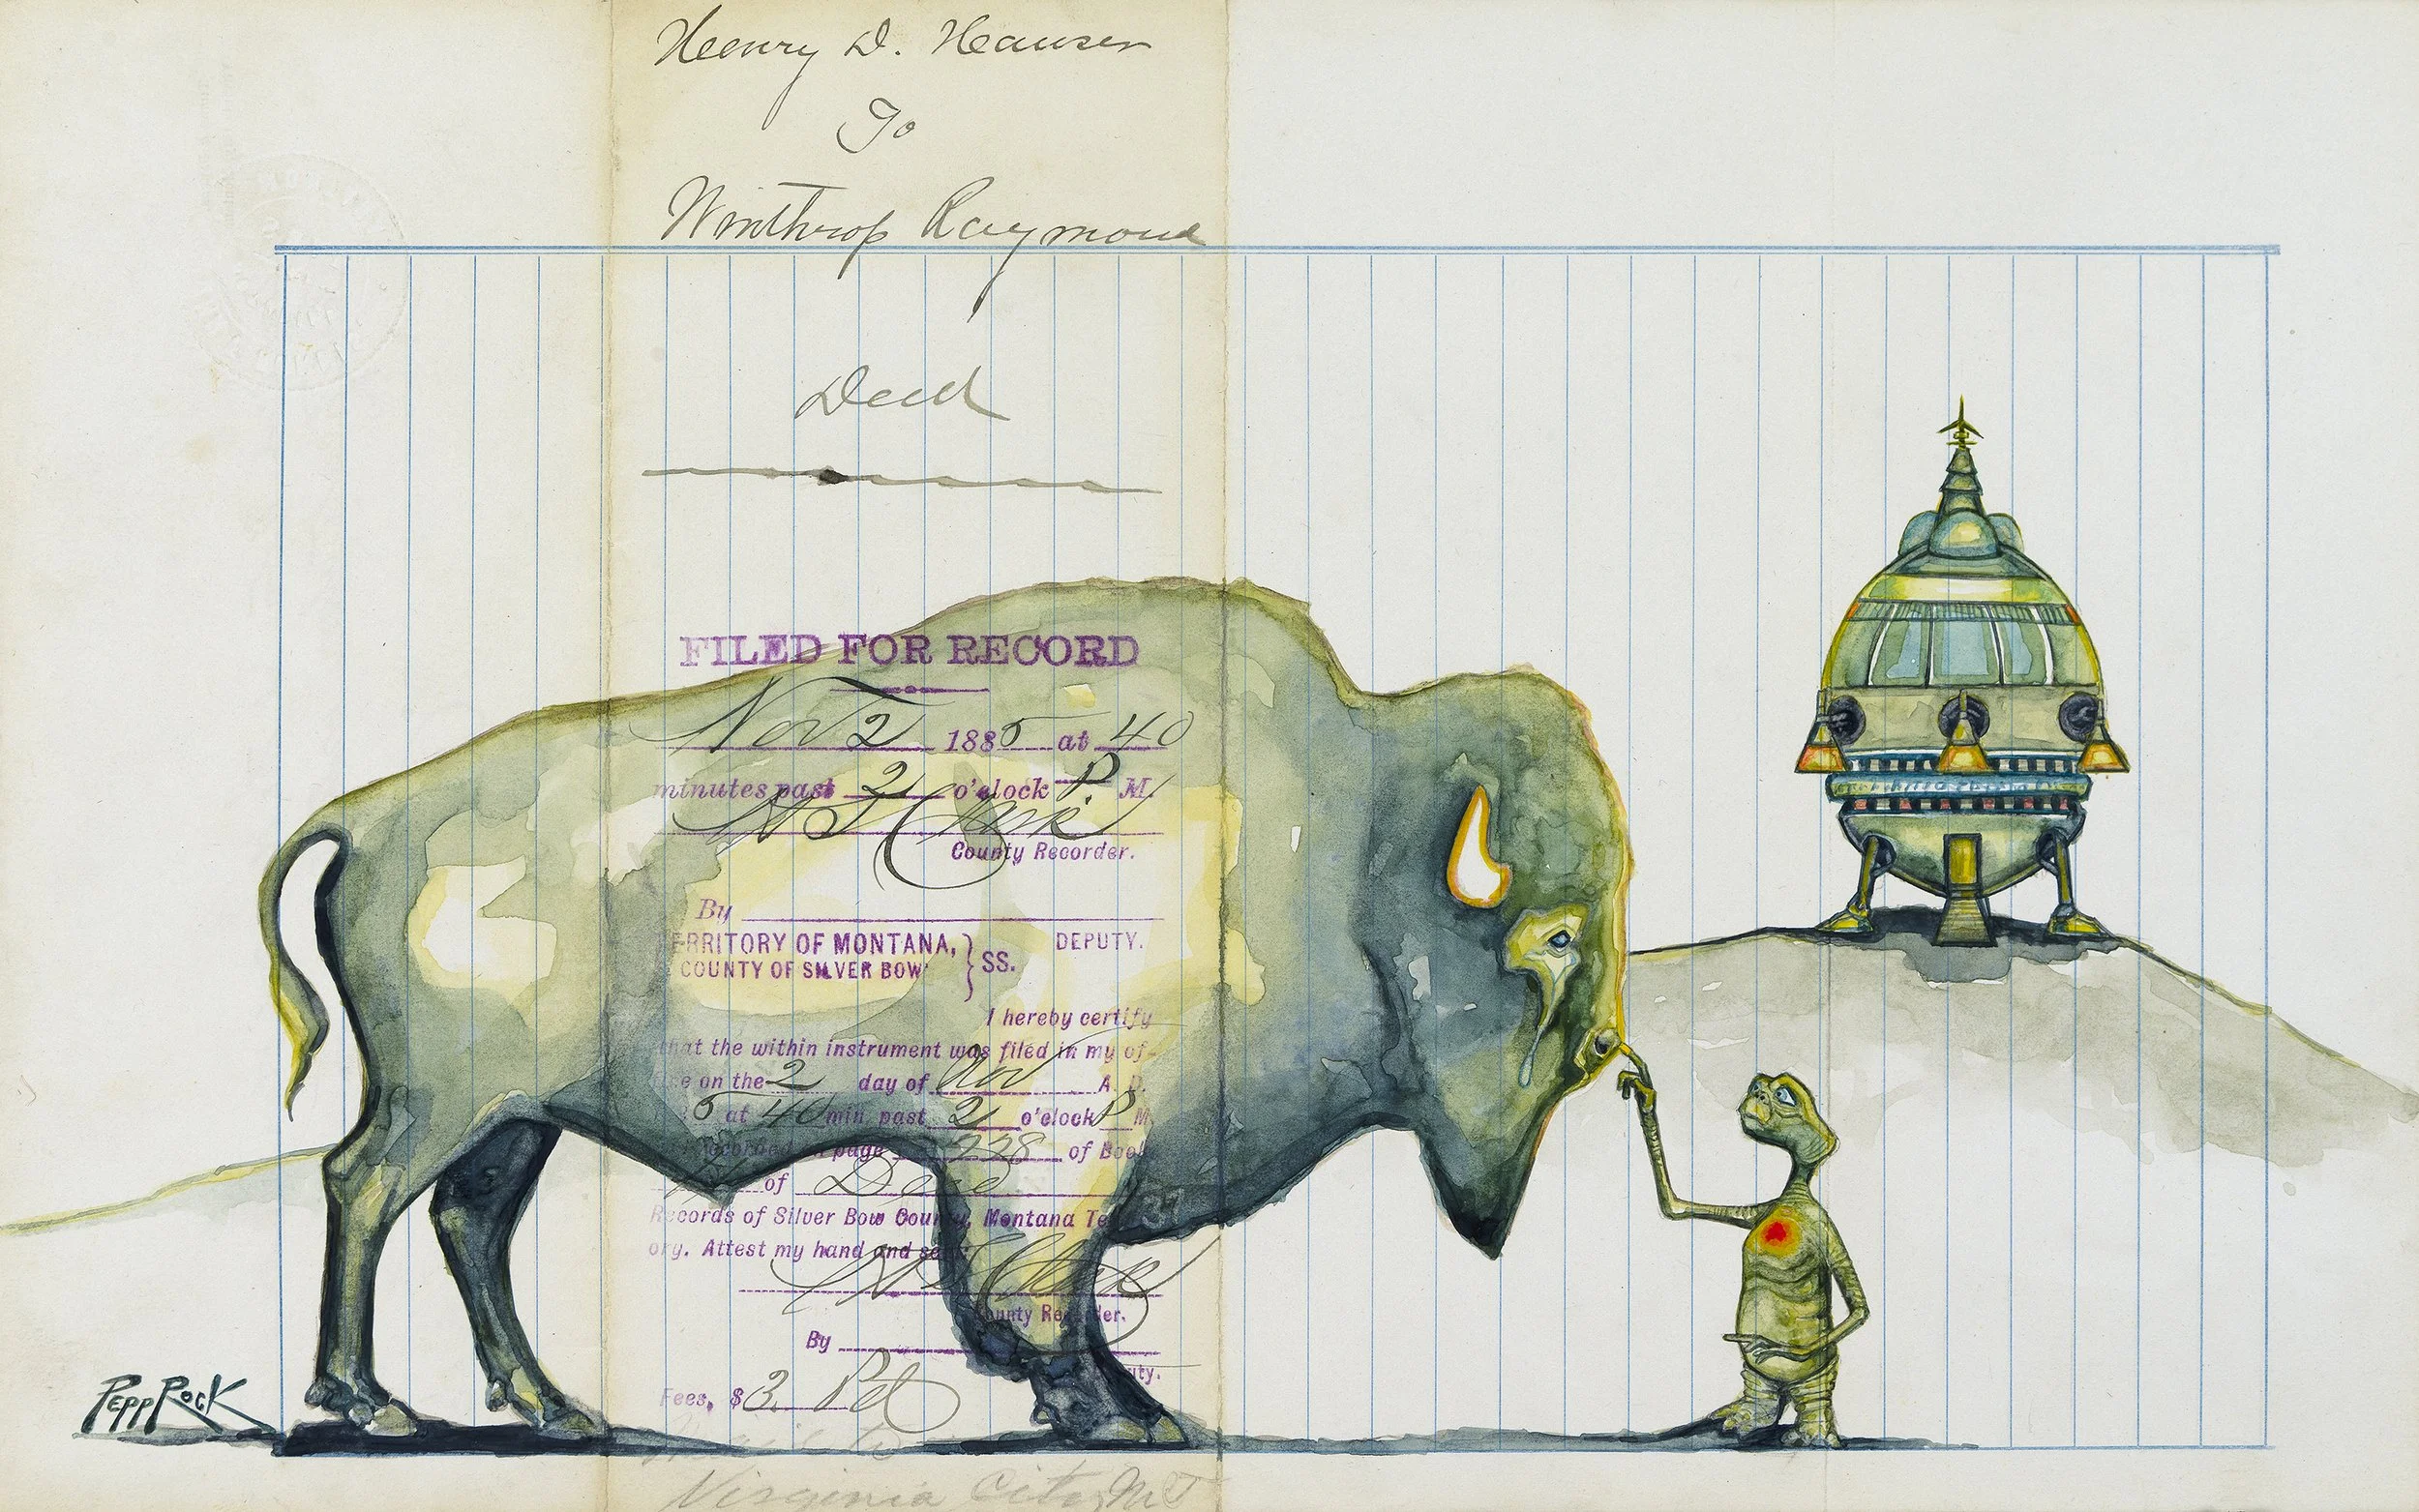 Henry D. Hauser
To
Winthrop Raymond
Deed
FILED FOR RECORD
Nov 2 1885 at 40
minutes past 2 o'clock P. M.
County Recorder.
By
DEPUTY.
TERRITORY OF MONTANA,
COUNTY OF SILVER BOW
} SS.
I hereby certify
that the within instrument was filed in my of-
fice on the 2 day of Nov A. D.
5 at 40 min past 2 o'clock P M.
recorded on page 228 of Book
of Deeds
Records of Silver Bow County, Montana Ter
ory. Attest my hand and seal
County Recorder.
By
Fees, $3. Pd
Virginia City M T
PEPPROCK